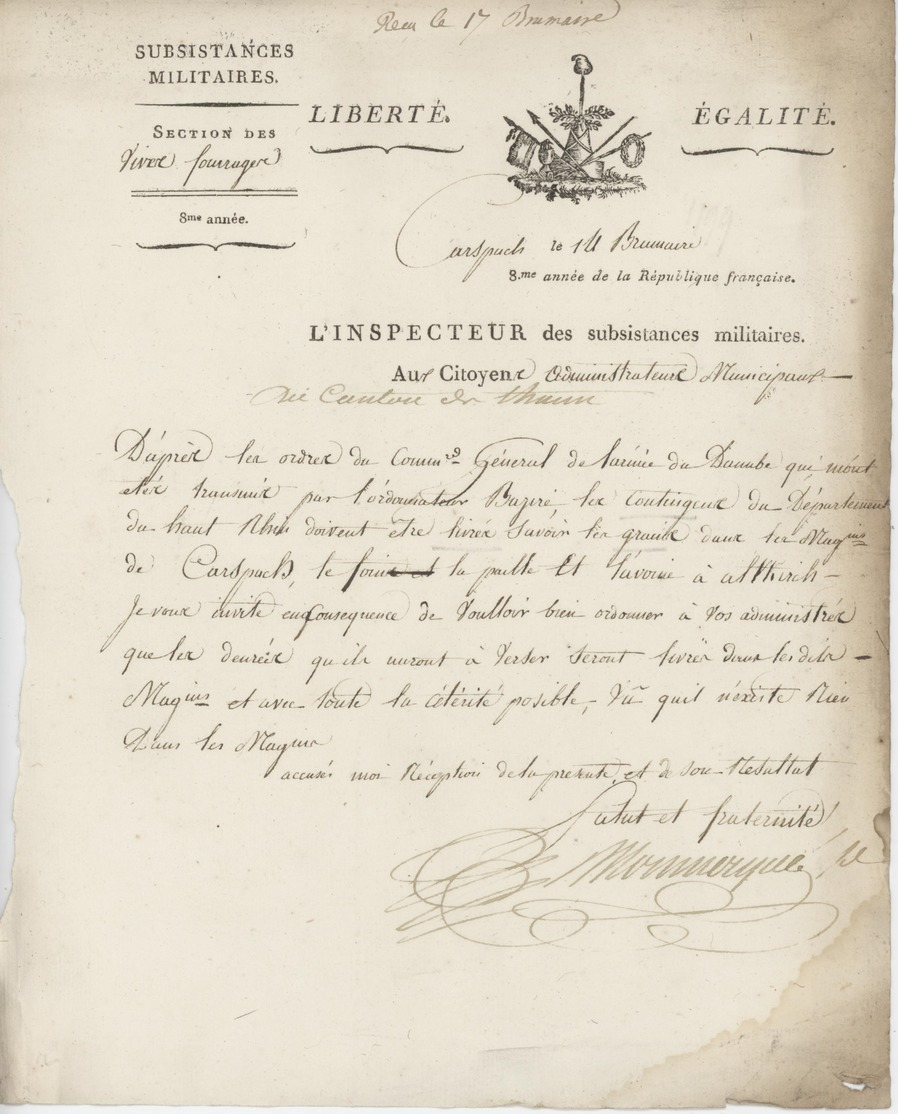 Recu le 17 Brumaire
SUBSISTANCES
MILITAIRES.
SECTION DES
Vivre fourrages
8me année.
LIBERTÉ.
ÉGALITÉ.
Carspach le 14 Brumaire
8.me année de la République française.
L'INSPECTEUR des subsistances militaires.
Aux Citoyens Administrateurs Municipaux
du Canton de thann
D'après les ordres du Commre Général de larmée du Danube qui m'ont
etés transmis par l'ordonnateur Baziré, les Contingens du Département
du haut Rhin doivent être livrés Savoir les grains dans les Magins
de Carspach, le foin et la paille Et l'avoine à altkirch
Je vous invite en Consequence de Voulloir bien ordonner à Vos administrés
que les denrées qu'ils auront à Verser Seront livrés dans lesdits
Magins et avec toute la célérité posible, Vû quil n'existe Rien
Dans les Magins
accusés moi Réception de la presente et de son Resultat
Salut et fraternité